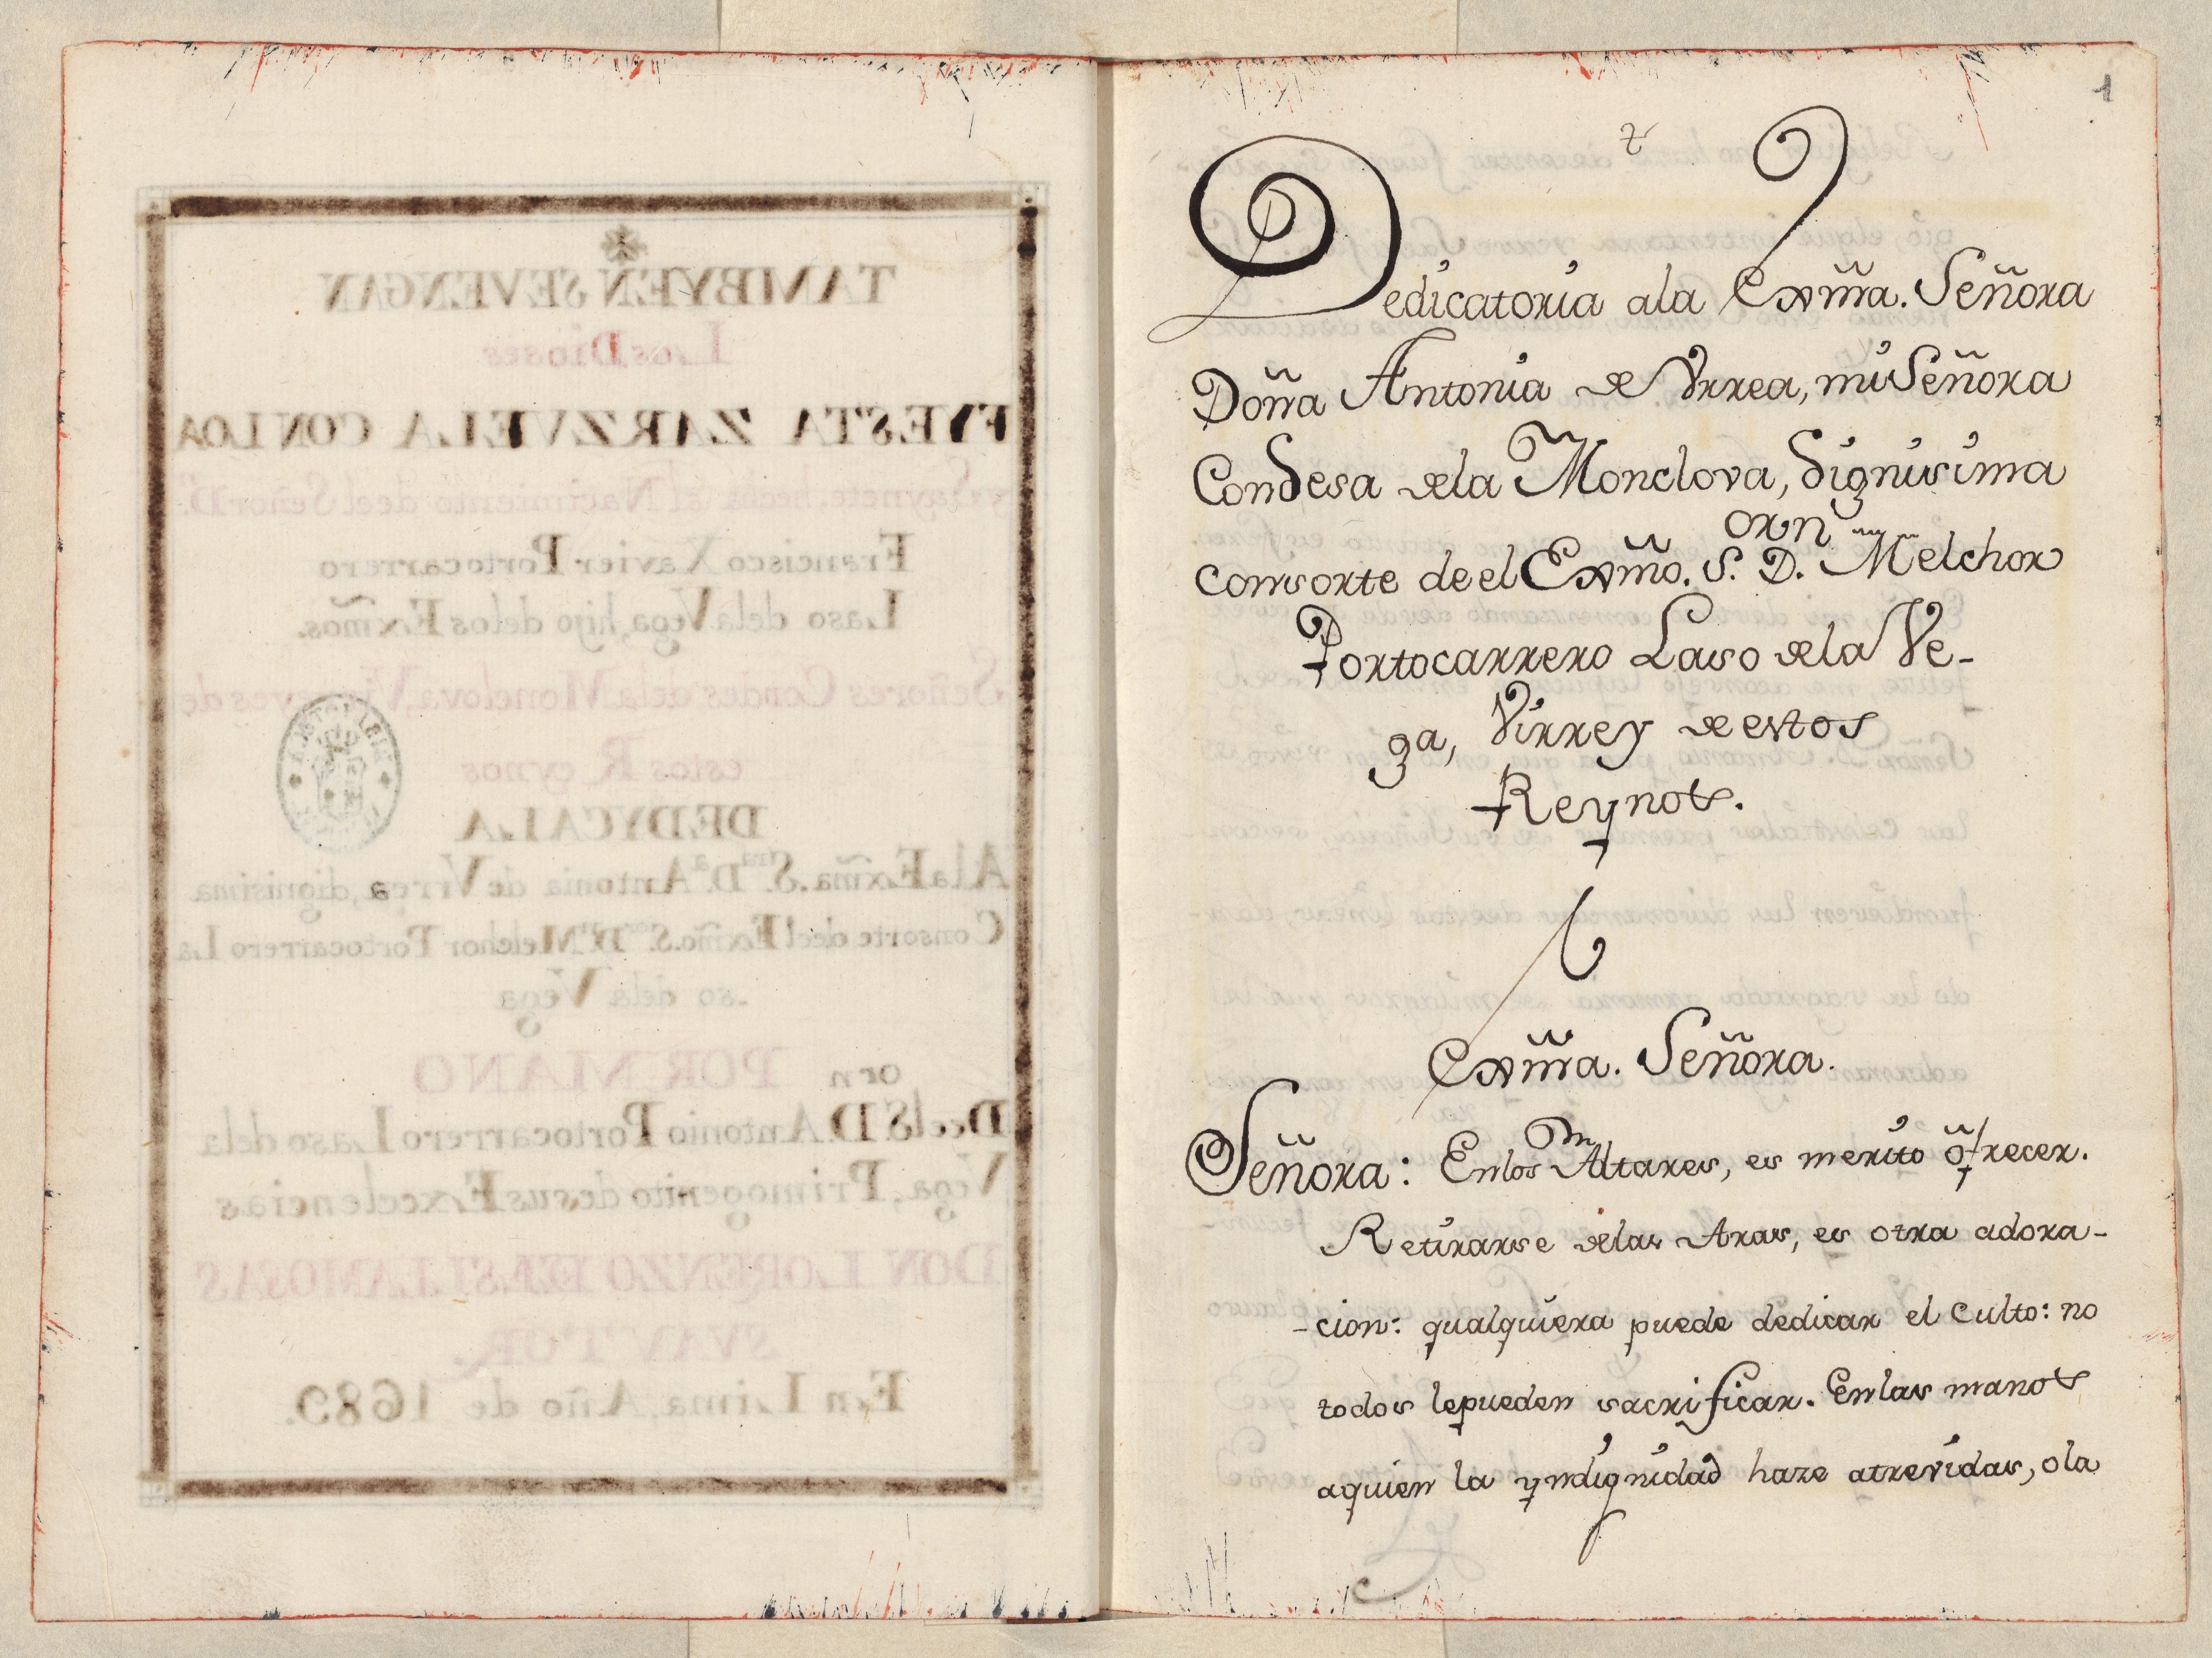 TAMBYEN SE VENGAN
Los Dioses
FYESTA ZARZVELA CON LOA
y Saynete, hecha al Nacimiento de el Señor Dⁿ
Francisco Xavier Portocarrero
Laso dela Vega, hijo delos Exm̃os.
Señores Condes dela Monclova, Virreyes de
estos Reynos
DEDYCALA
Ala Exm̃a. S.ʳᵃ D.ª Antonia de Vrrea, dignisima
Consorte deel Exm̃o. S.ᵒʳ Dⁿ Melchor Portocarrero La
so dela Vega
POR MANO
Deel Sᵒʳ Dⁿ Antonio Portocarrero Laso dela
Vega, Primogenito de sus Excelencias
DON LORENZO DE LAS LLAMOSAS
SV AVTOR.
En Lima, Año de 1689.
1
Dedicatoria ala Exm̃a. Señora
Doña Antonia de Vrrea, mi Señora
Condesa dela Monclova, dignisima
consorte de el Exm̃o. S.ᵒʳ D.ⁿ Melchor
Portocarrero Laso dela Ve-
ga, Virrey de estos
Reynos.
Exm̃a. Señora.
Señora: En los Altares, es merito ofrecer.
Retirarse delas Aras, es otra adora-
-cion: qualquiera puede dedicar el culto: no
todos le pueden sacrificar. En las manos
aquien la yndignidad haze atrevidas, o la